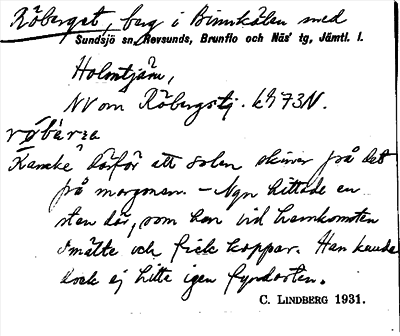 Röberget, berg i Binnkölen med
Sundsjö sn, Revsunds, Brunflo och Näs' tg, Jämtl. l.
Holmtjärn,
NV om Röbergstj. kh 73N.
Kanske därför att solen skiner på det
på morgonen. – Ngn hittade en
sten där, som han vid hemkomsten
smälte och fick koppar. Han kunde
dock ej hitta igen fyndorten.
C. LINDBERG 1931.